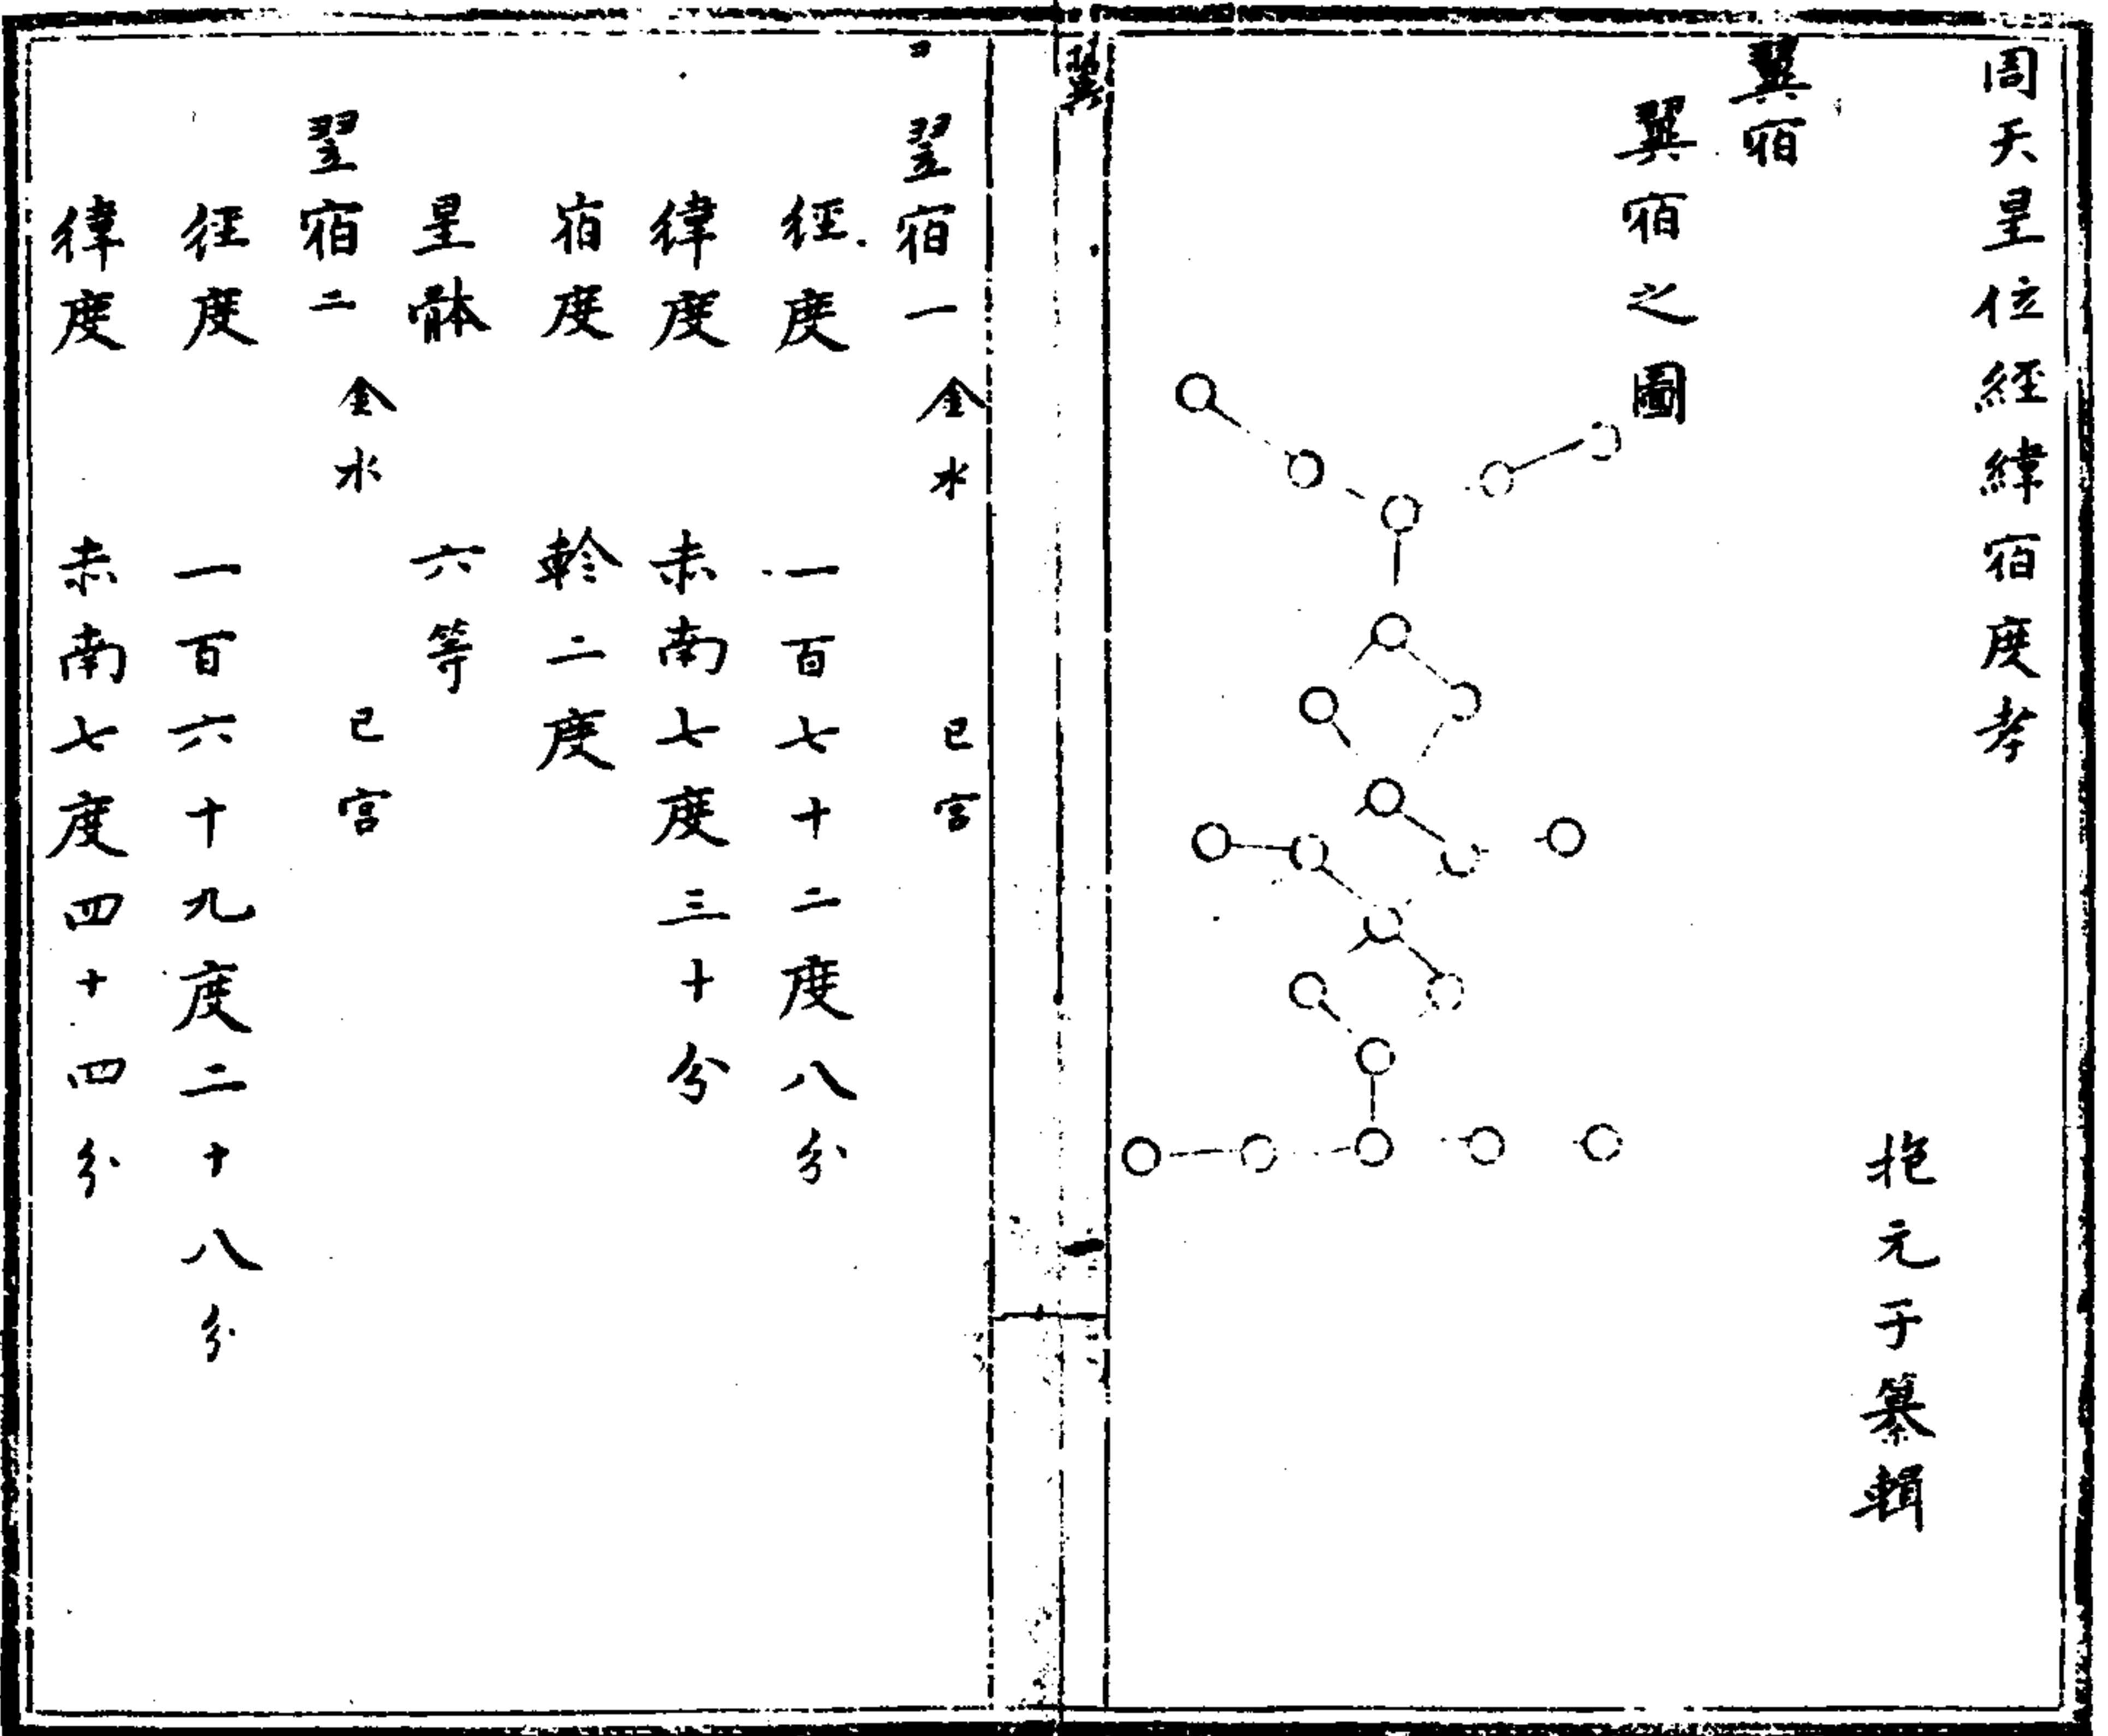 周天星位經緯宿度考
抱元子纂輯
翼宿
翼宿之圖
翼
一
翌宿一 金水 巳宮
徑度 一百七十二度八分
律度 赤南七度三十分
宿度 軫二度
星體 六等
翌宿二 金水 巳宮
徑度 一百六十九度二十八分
律度 赤南七度四十四分